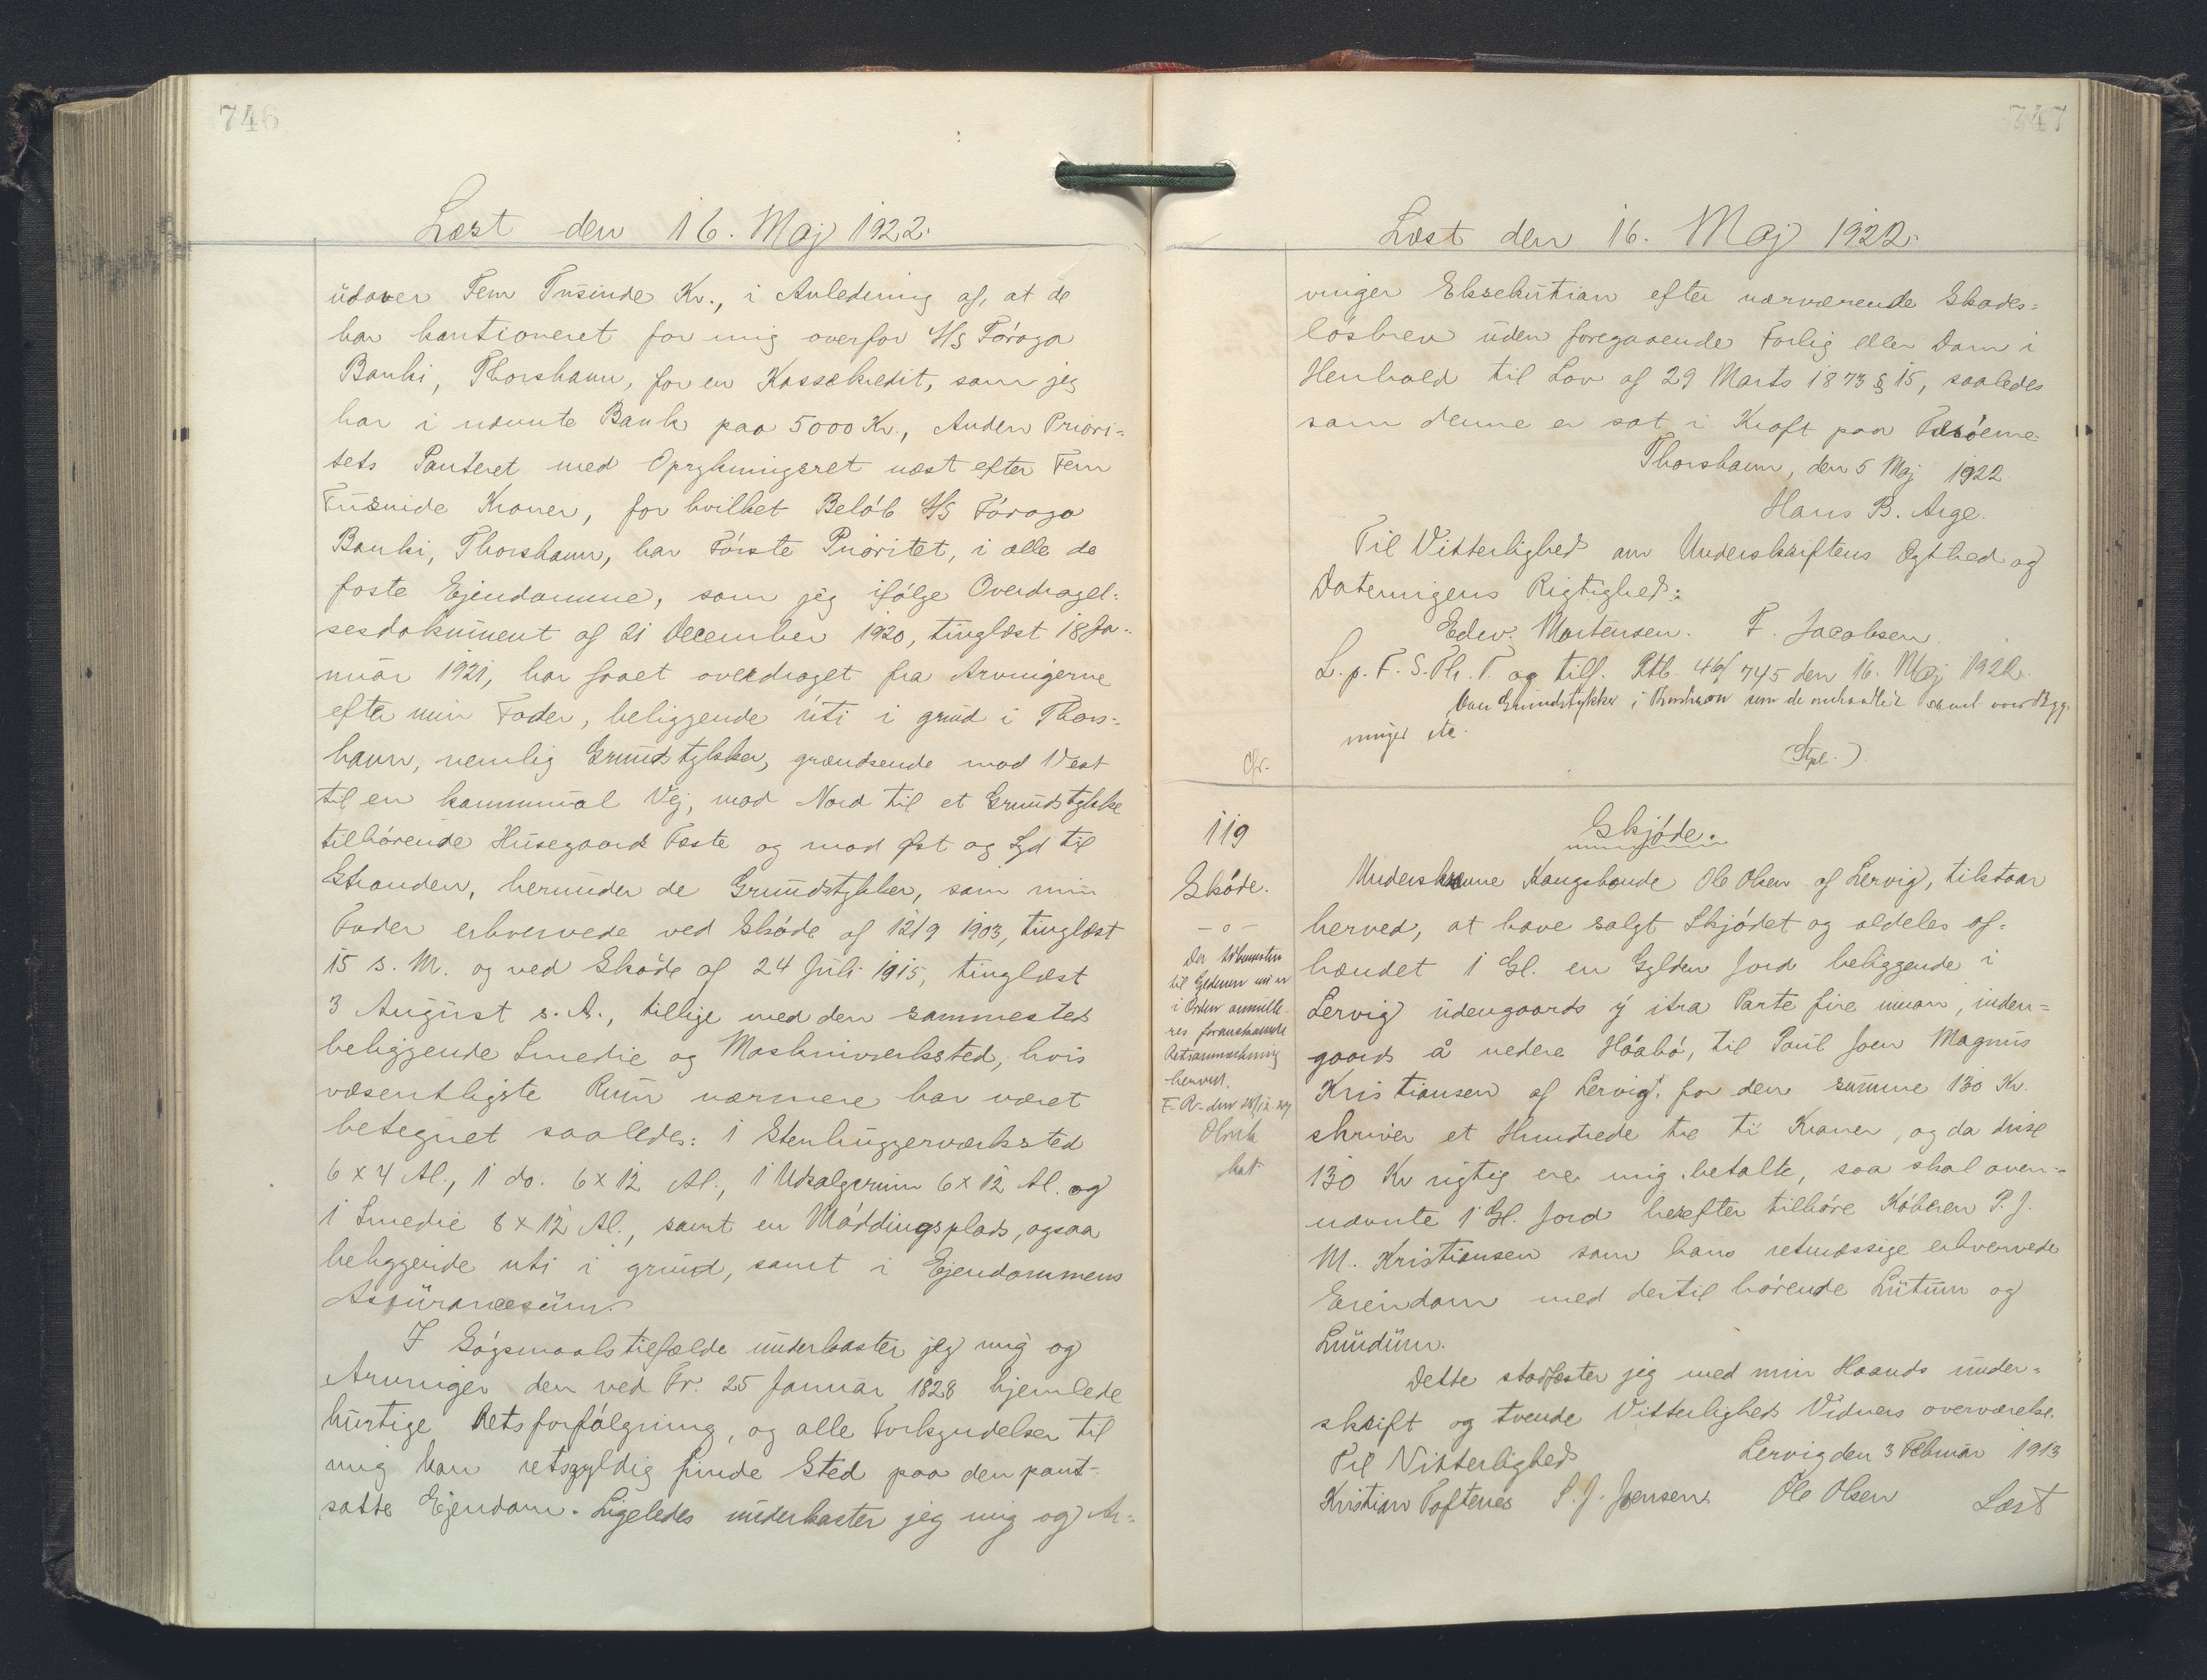 746
Læst den 16. Maj 1922.
udover Fem Tusinde Kr., i Anledning af, at de
har kautioneret for mig overfor A/S Föroya
Banki, Thorshavn, for en Kassekredit, som jeg
har i nævnte Bank paa 5000 Kr., Anden Priori-
tets Panteret med Oprykningsret næst efter Fem
Tusinde Kroner, for hvilket Beløb A/S Föroya
Banki, Thorshavn, har Første Prioritet, i alle de
faste Ejendomme, som jeg ifølge Overdragel-
sesdokument af 21 December 1920, tinglæst 18 Ja-
nuar 1921, har faaet overdraget fra Arvingerne
efter min Fader, beliggende úti i grund i Thors-
havn, nemlig Grundstykker, grændsende mod Vest
til en kommunal Vej, mod Nord til et Grundstykke
tilhørende Húsegaard Fæste og mod Øst og Syd til
Stranden, herunder de Grundstykker, som min
Fader erhvervede ved Skøde af 12/9 1903, tinglæst
15 s. M. og ved Skøde af 24 Juli 1915, tinglæst
3 August s. A., tillige med den sammesteds
beliggende Smedie og Maskinværksted, hvis
væsentligste Rum nærmere har været
betegnet saaledes: 1 Stenhuggerværksted
6 x 4 Al., 1 do. 6 x 12 Al., 1 Udsalgsrum 6 x 12 Al. og
1 Smedie 8 x 12 Al., samt en Møddingsplads, ogsaa
beliggende uti i grund, samt i Ejendommens
Assurancesum.
I Søgsmaalstilfælde underkaster jeg mig og
Arvinger den ved Fr. 25 Januar 1828 hjemlede
hurtige Retsforfølgning, og alle Forkyndelser til
mig kan retsgyldig finde Sted paa den pant-
satte Ejendom. Ligeledes underkaster jeg mig og Ar-
747
Læst den 16. Maj 1922.
vinger Eksekution efter nærværende Skades-
løsbrev uden foregaaende Forlig eller Dom i
Henhold til Lov af 29 Marts 1873 § 15, saaledes
som denne er sat i Kraft paa Færøerne.
Thorshavn, den 5 Maj 1922.
Hans B. Arge.
Til Vitterlighed om Underskriftens Ægthed og
Dateringens Rigtighed:
Edw. Mortensen. F. Jacobsen.
L. p. F. S. Th. T. og tilf. Ptb. 46/745 den 16. Maj 1922.
Grundstykker i Thorshavn som de omhandlet Bygg-
ninger etc.
Cfr.
(Spl.)
119
Skøde.
- o -
Skjøde.
Underskrevne Kongsbonde Ole Olsen af Lervig, tilstaar
herved, at have solgt Skjødet og aldeles af-
hændet 1 Gl. en Gylden Jord beliggende i
Lervig udengaards ý itra Parte fire innan, inden-
gaards á nedera Høabø, til Poul Joen Magnus
Kristiansen af Lervig. for den summe 130 Kr.
skriver et Hundrede tre ti Kroner, og da disse
130 Kr rigtig ere mig betalte, saa skal oven-
nævnte 1 Gl. Jord herefter tilhøre Køberen P. J.
M. Kristiansen som hans retmæssige erhvervede
Eiendom med dertil hørende Lutum og
Lundum.
Dette stadfæster jeg med min Haands under-
skrift og tvende Vitterligheds Vidners overværelse.
Til Vitterlighed
Lervig den 3 Februar 1913
Kristian Toftenes S. J. Joensen
Ole Olsen
Læst
i Orden
Retsanmærkning
herved.